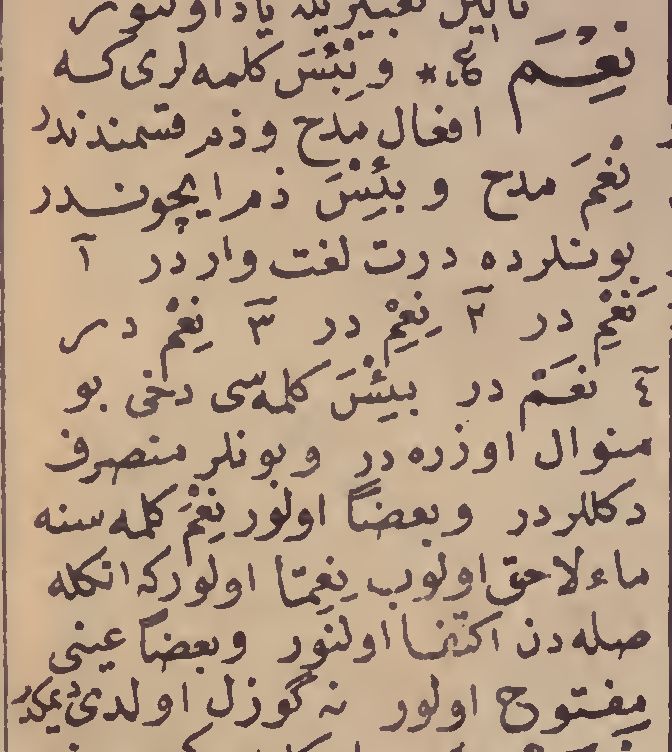 تعبيريله ياد اولنور
نِعْمَ ع * وبِئْسَ كلمه لرى كه
افعال مدح وذم قسمندندر
نِعْمَ مدح و بِئْسَ ذم ايچوندر
بونلرده درت لغت واردر ١
نَعْمَ در ٢ نِعِمْ در ٣ نِعْمْ در
٤ نَعَمْ در بِئْسَ كلمه سى دخى بو
منوال اوزره در وبونلر متصرف
دكللردر وبعضاً اولور نِعْمَ كلمه سنه
ماء لاحق اولوب نِعِمّا اولور كه انكله
صله دن اكتفا اولنور وبعضاً عينى
مفتوح اولور نه گوزل اولدى ديمكدر